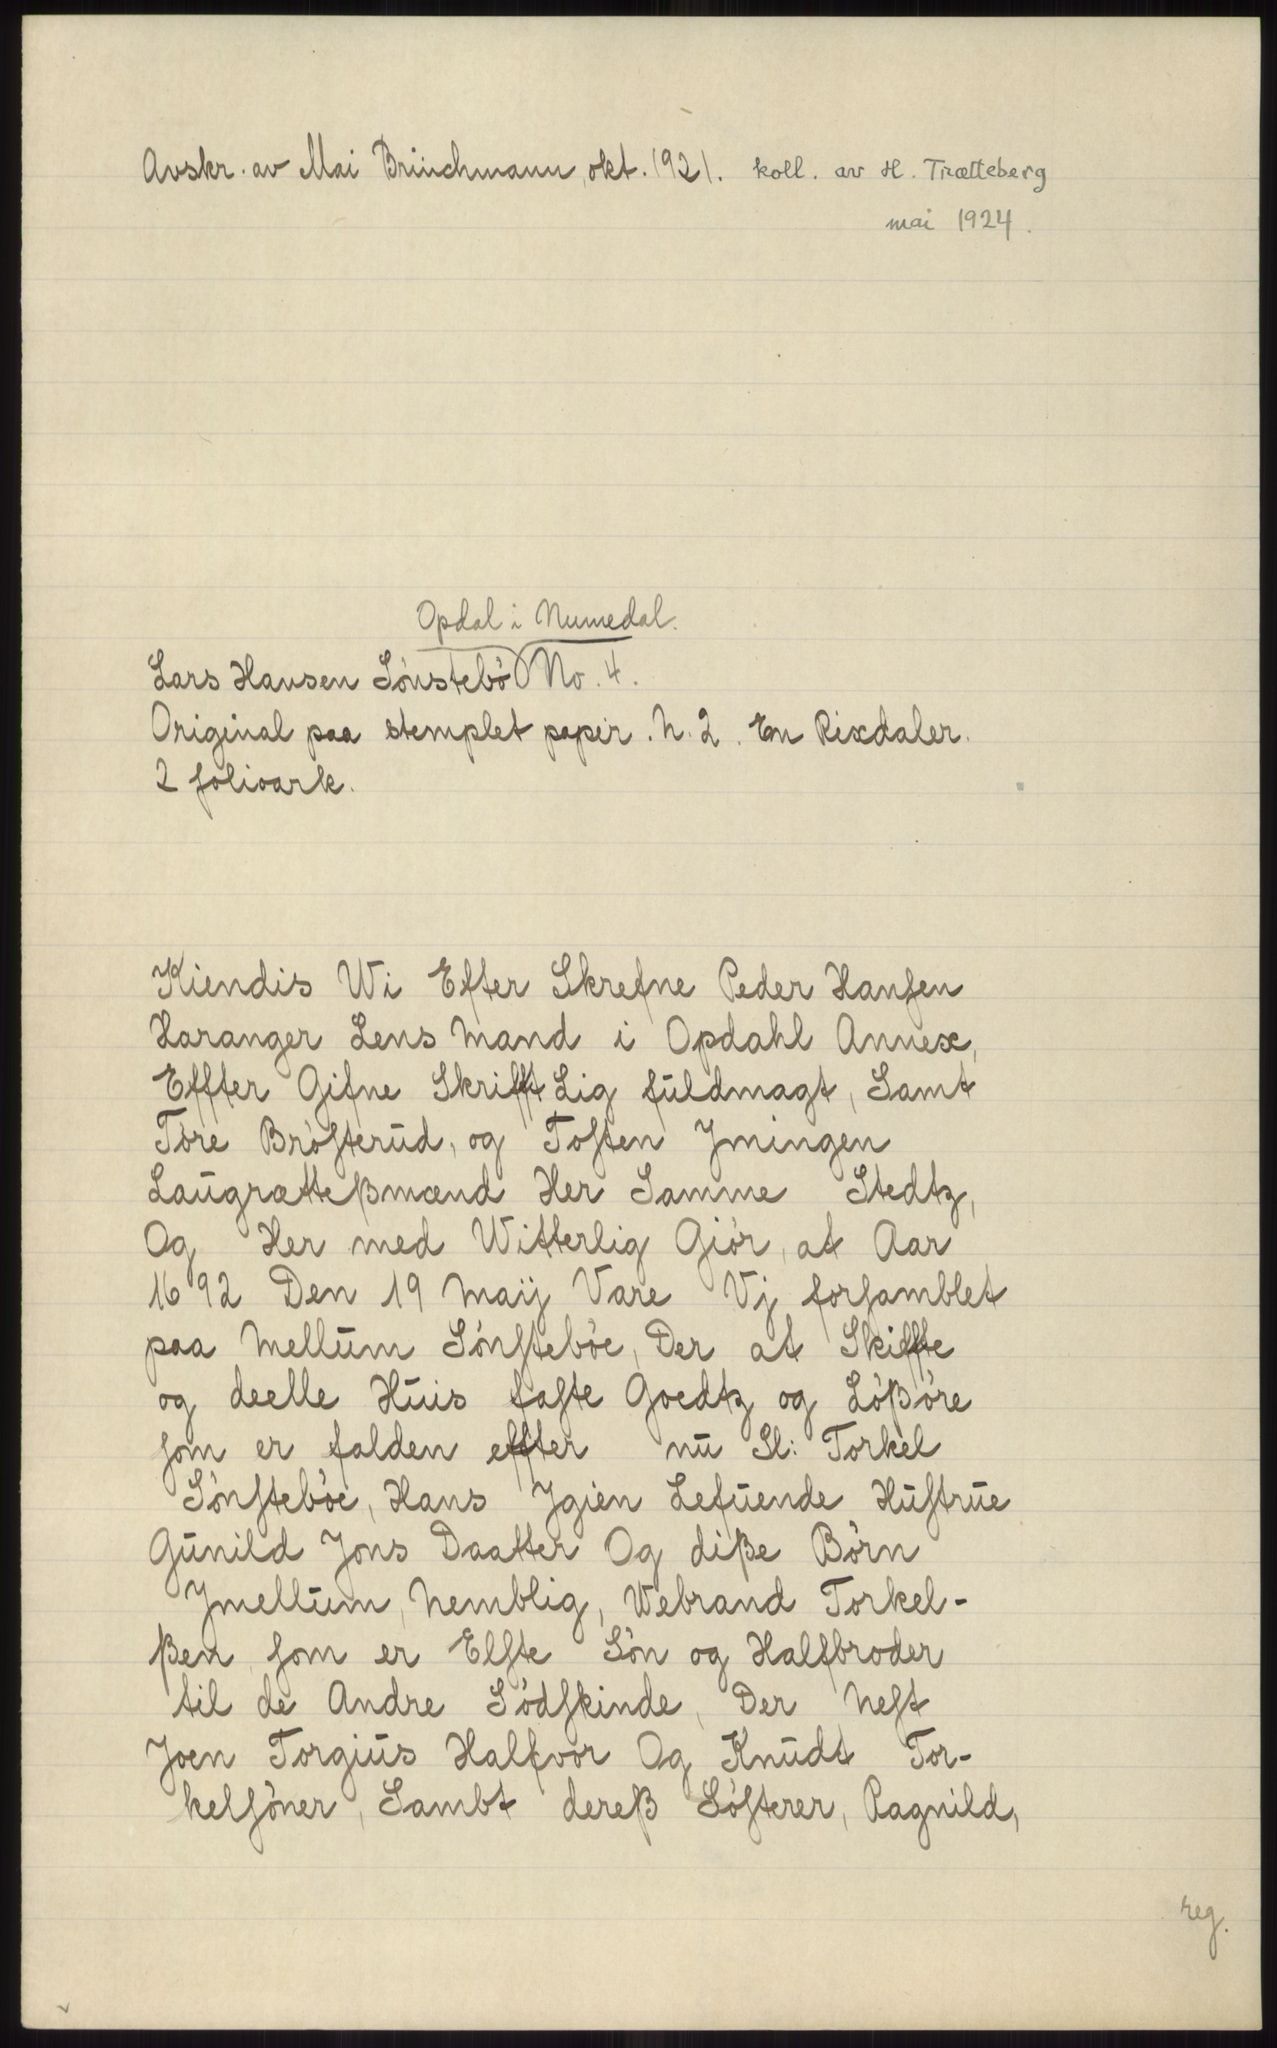 Avskr. av Mai Brünchmann, okt. 1921. koll. av H. Trætteberg
mai 1924.
Opdal i Numedal.
Lars Hansen Sønstebø No. 4.
Original paa stemplet papir. N. 2. En Rixdaler.
2 folioark.
Kiendis Wi Efter Skrefne Peder Hansen
Haranger Lens Mand i Opdahl Annex,
Effter Gifne Skrifft Lig fuldmagt, Samt
Tore Brøsterud, og Tosten Ymingen
Laugrætteßmænd Her Samme Stedtz,
Og Her med Witterlig Giør, at Aar
1692 Den 19 Maij Vare Vj forsamblet
paa Mellum Sønstebøe, Der at Skiffte
og deelle Huis faste Goedtz og Løßøre
som er falden effter nu Sl: Torkel
Sønstebøe, Hans Ygien Lefuende Hustrue
Gunild Jons Daatter Og diße Børn
Ymellum, Nemblig, Webrand Torkel-
ßen som er Elste Søn og Halfbroder
til de Andre Sødskinde, Der Nest
Joen Torgius Halfvor Og Knudt Tor-
kelsøner, Sambt dereß Søsterer, Ragnild,
reg.